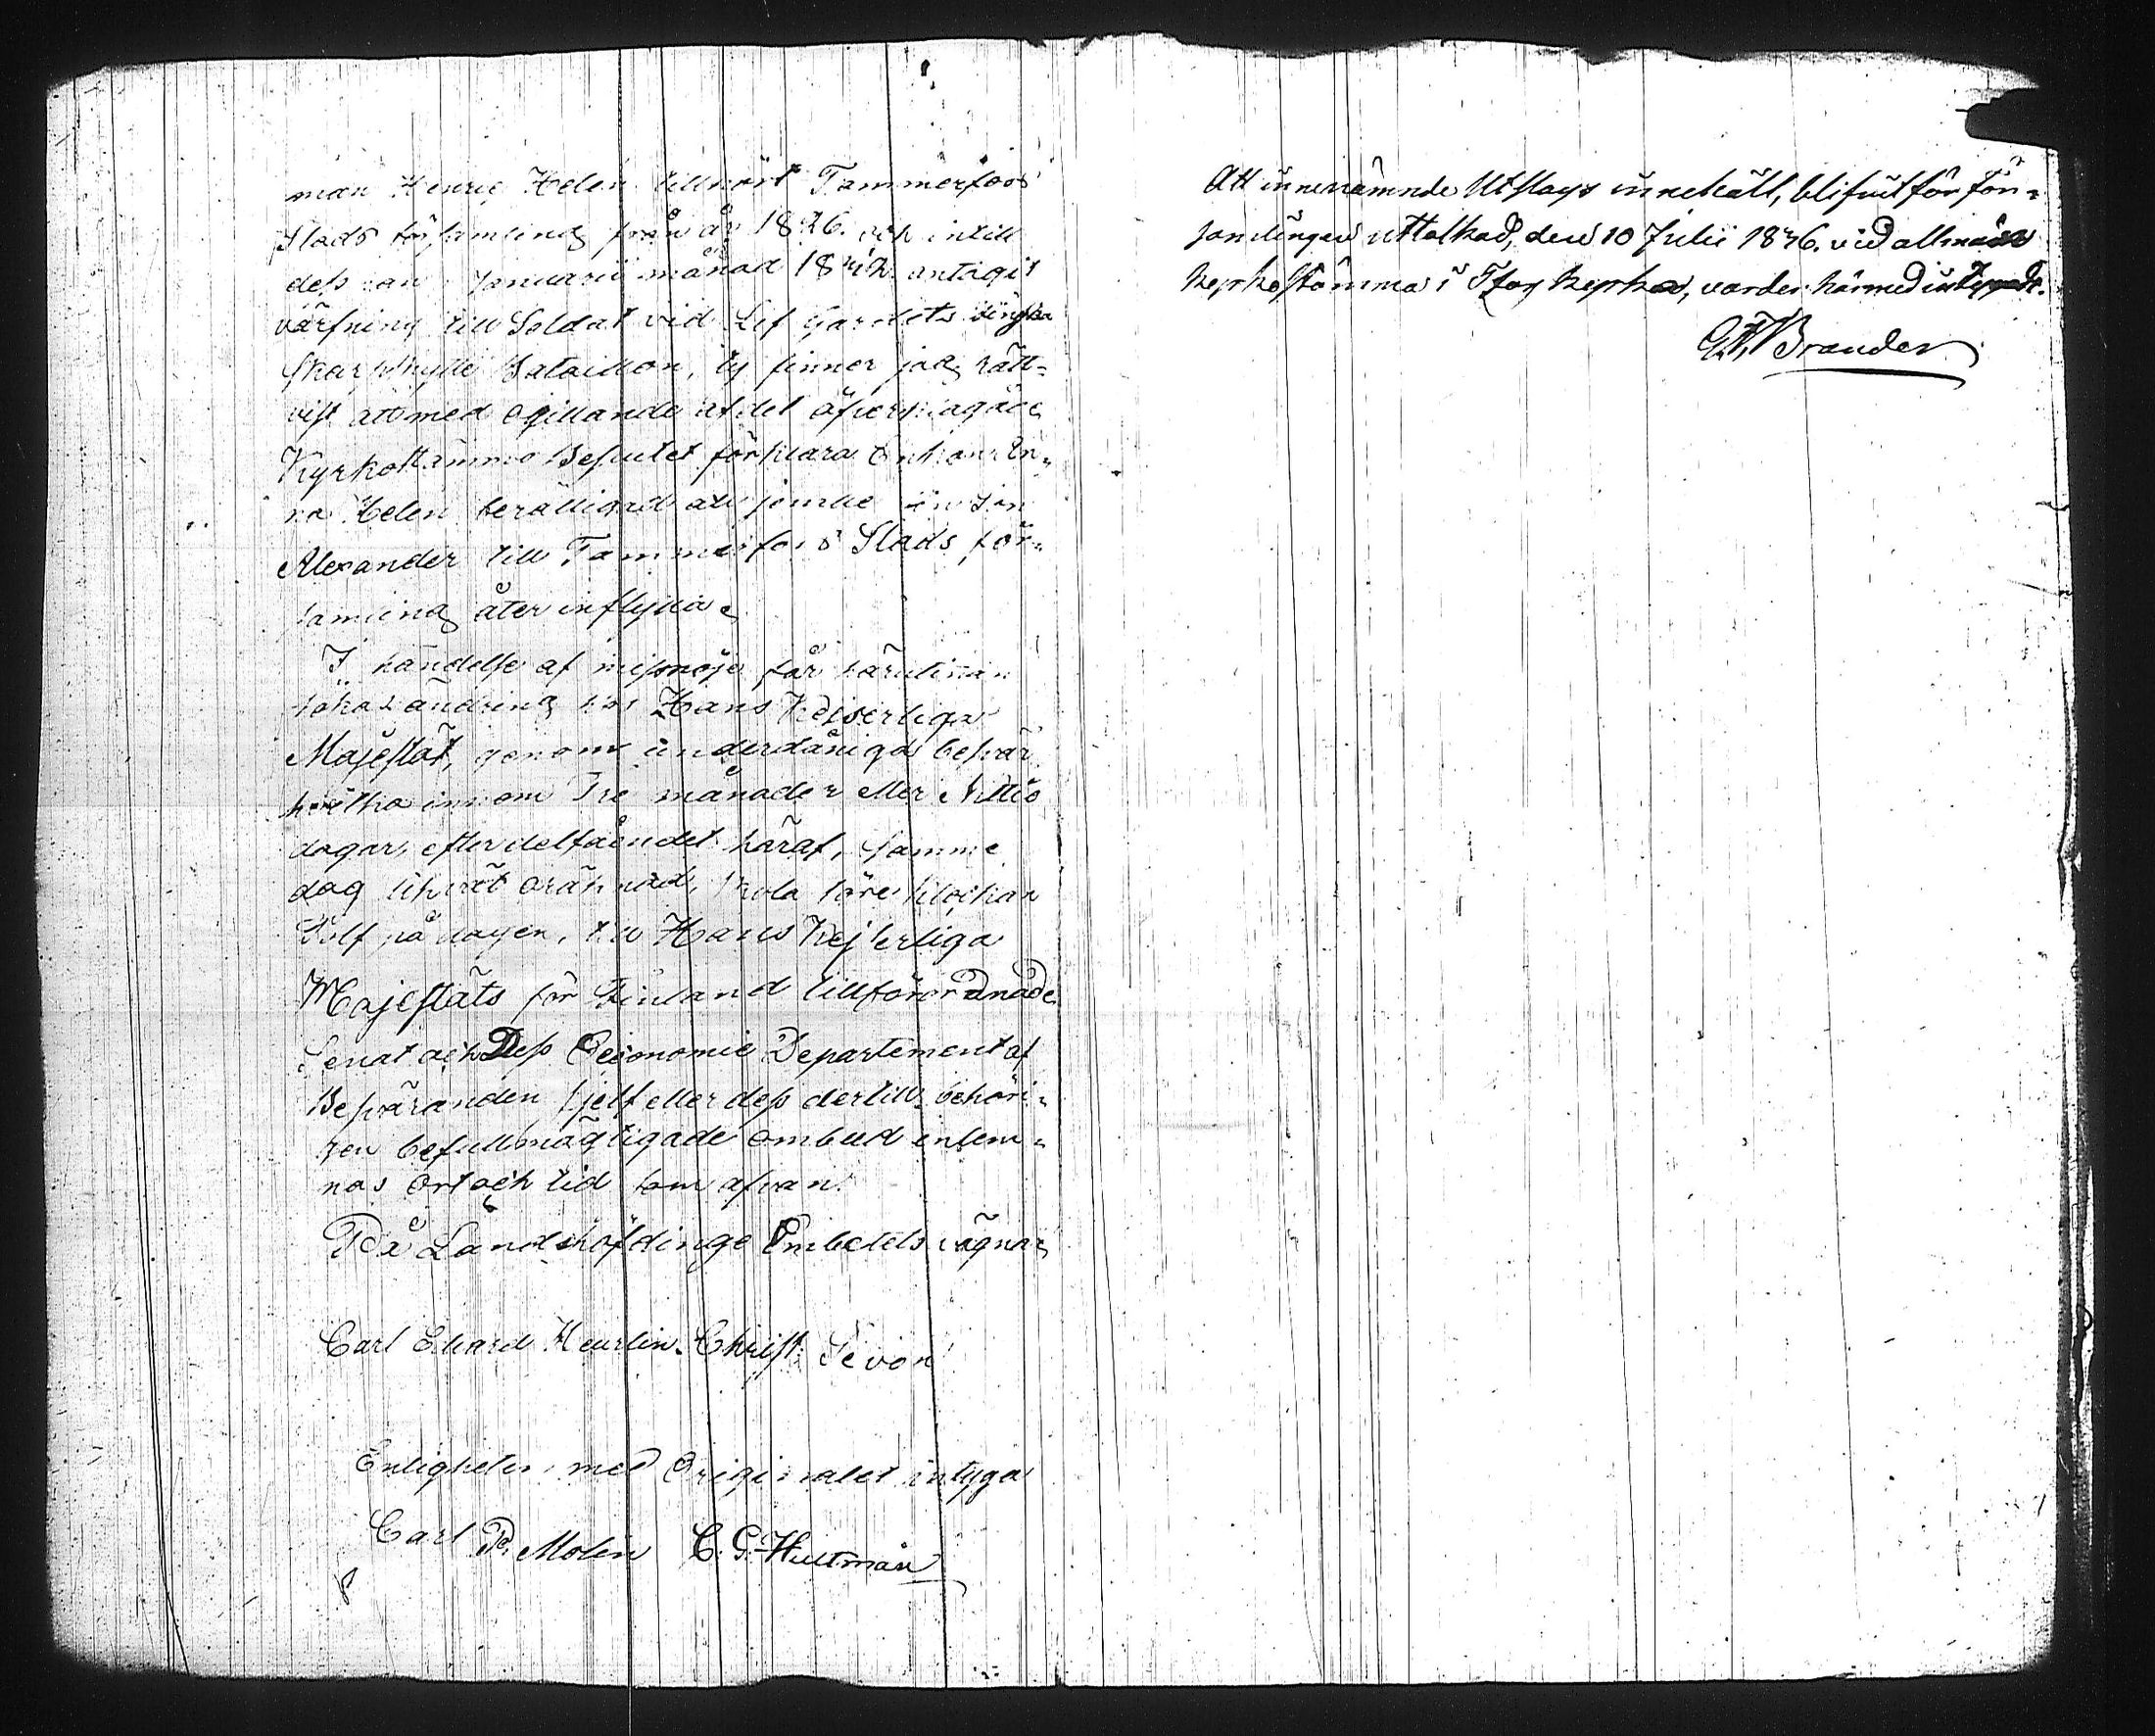 man Henric Helen tillhört Tammerfors
Stads församling från år 1826. och intill
dess han i Januarii månad 1842 antagit
värfning till Soldat vid Lif Gardets Finska
Skarpskytte Bataillon, ty finner jag rätt-
vist att med ogillande af det öfverklagade
Kyrkostämmo Beslutet förklara Enkan An-
na Helen berättigad att jemte sin Son
Alexander till Tammerfors Stads för-
samling återinflytta.
I händelse af missnöje får härutinnan
sökas ändring hos Hans Kejserliga
Majestät, genom underdåniga besvär
hvilka innom Tre månader eller Nittio
dagar, efter delfåendet häraf, samme
dag likväl oräknad, skola före klockan
Tolf på dagen, till Hans Kejserliga
Majestäts för Finland tillförordnade
Senat och Dess Oeconomie Departement af
Besväranden sjelf eller dess dertill behöri-
gen befullmägtigade ombud inlem-
nas Ort och tid som ofvan.
På Landshöfdinge Embetets vägnar
Carl Edvard Heurlin. Christ: Sevón
Enligheten med Originalet intyga
Carl R. Molin C. G. Hultman
Att innenämnde Utslags innehåll, blifvit för För-
samlingen uttolkad, den 10 Julii 1846. vid allmän
Kyrkostämma i Kyrka, varder härmed intygadt.
Brander